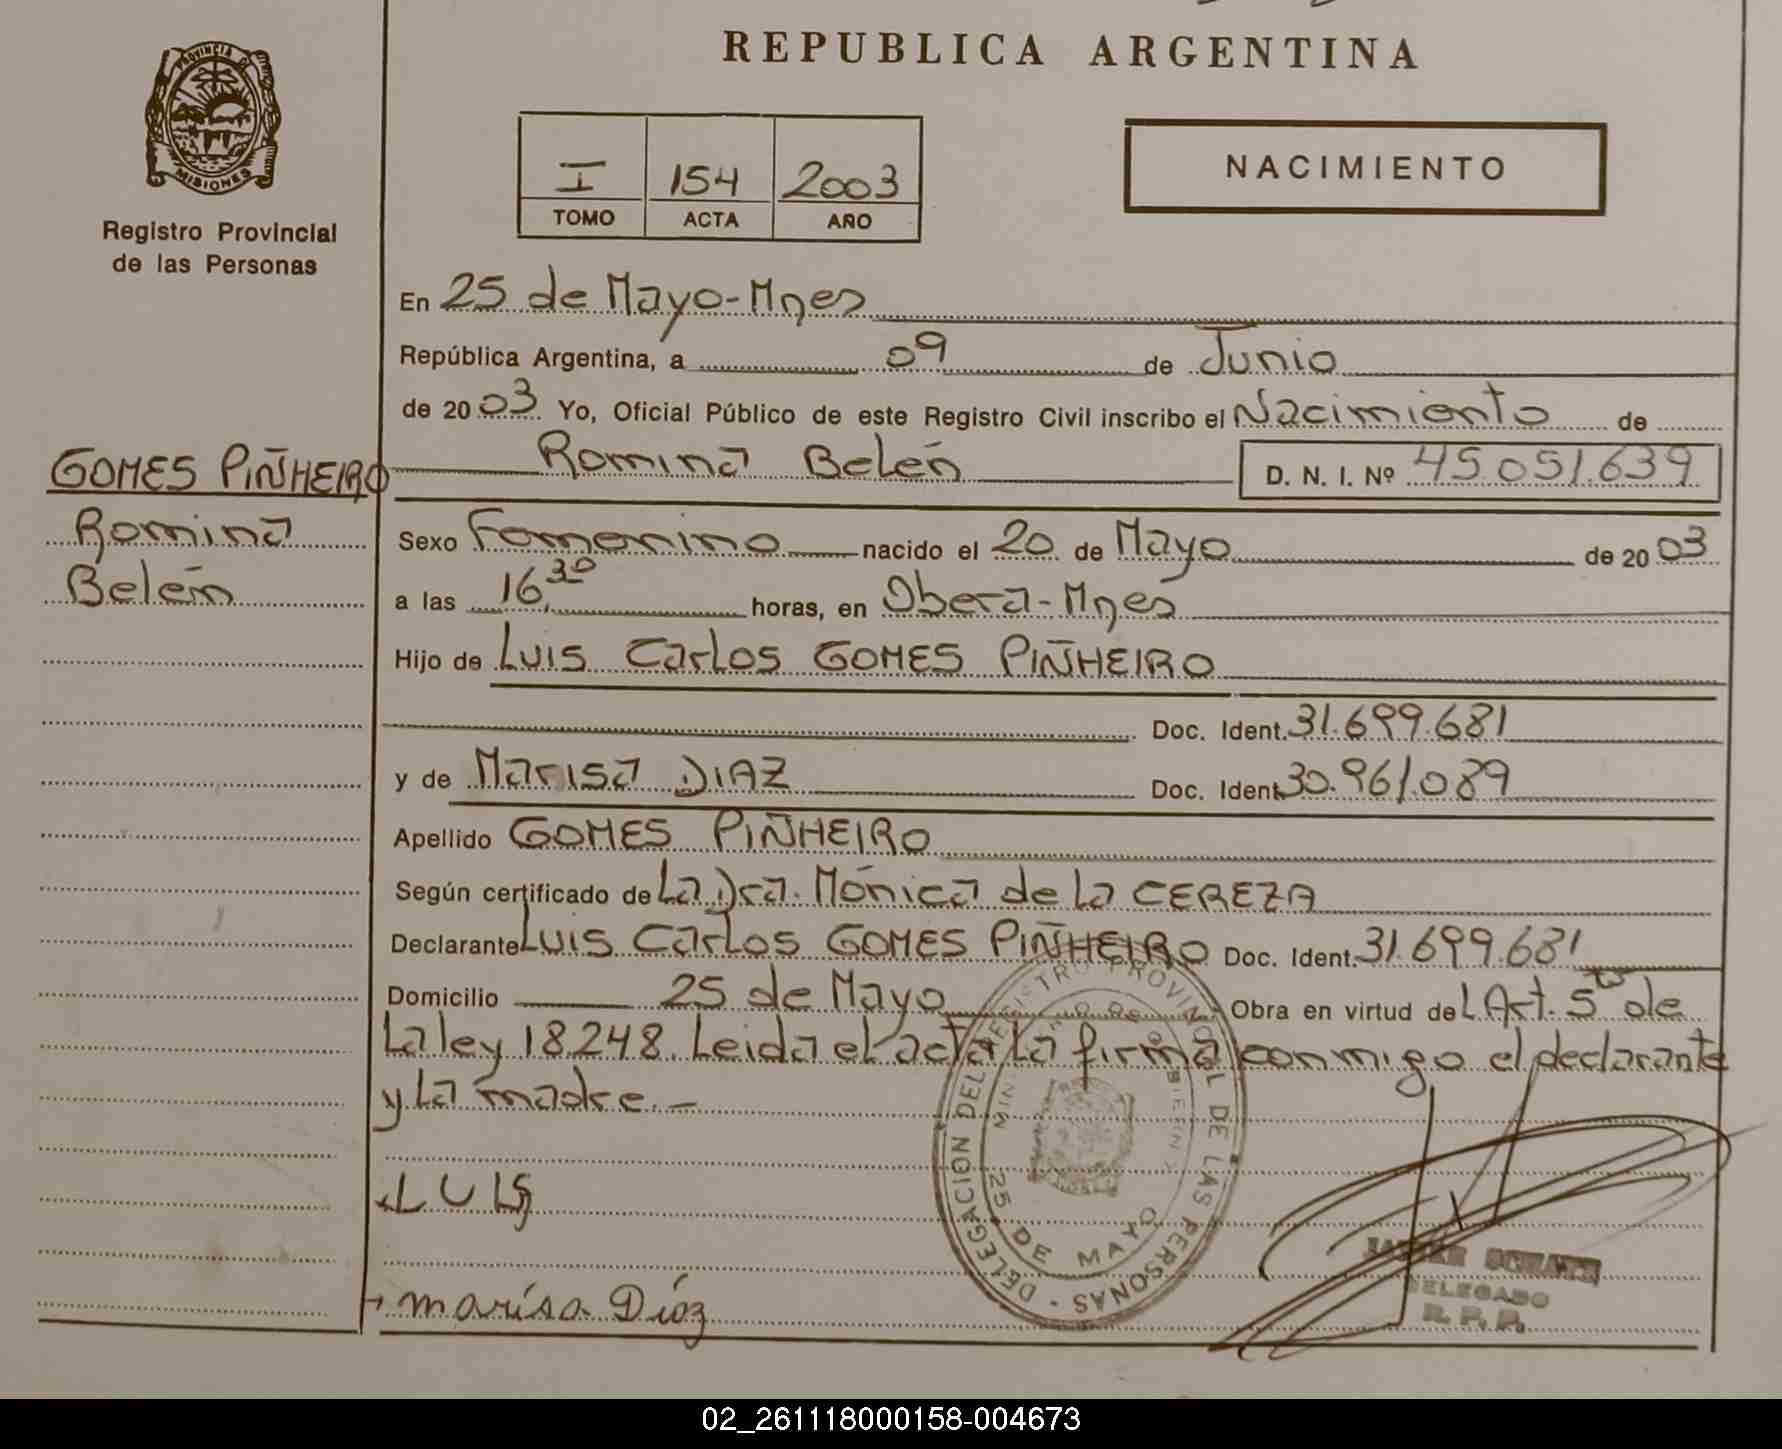 REPUBLICA ARGENTINA
PROVINCIA DE
MISIONES
Registro Provincial
de las Personas
I 154 2003
TOMO ACTA AÑO
NACIMIENTO
En 25 de Mayo-Mnes
República Argentina, a 09 de Junio
de 2003. Yo, Oficial Público de este Registro Civil inscribo el Nacimiento de
GOMES PIÑHEIRO Romina Belén D. N. I. Nº 45.051.639
Romina
Belém
Sexo Femenino nacido el 20 de Mayo de 2003
a las 16,30 horas, en Obera-Mnes
Hijo de Luis Carlos GOMES PIÑHEIRO
Doc. Ident. 31.699.681
y de Marisa DIAZ Doc. Ident. 30.961.089
Apellido GOMES PIÑHEIRO
Según certificado de La Dra. Mónica de la CEREZA
Declarante Luis Carlos GOMES PIÑHEIRO Doc. Ident. 31.699.681
Domicilio 25 de Mayo Obra en virtud del Art. 5to de
La ley 18.248. Leida el acta la firma conmigo el declarante
y La madre.-
LUIS
marisa Díaz
DELEGACION DEL REGISTRO PROVINCIAL DE LAS PERSONAS
25 DE MAYO
DELEGADO
R. P. P.
02_261118000158-004673